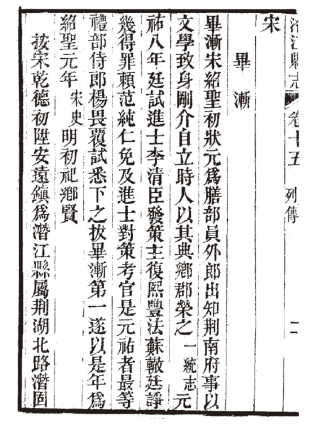 潛江縣志 卷十五 列傳 一
宋
畢漸
畢漸宋紹聖初狀元爲膳部員外郎出知荆南府事以
文學致身剛介自立時人以其典鄉郡榮之一統志元
祐八年廷試進士李清臣發策主復熙豐法蘇轍廷諍
幾得罪賴范純仁免及進士對策考官是元祐者最等
禮部侍郎楊畏覆試悉下之拔畢漸第一遂以是年爲
紹聖元年宋史明初祀鄉賢
按宋乾德初陞安遠鎮爲潛江縣屬荆湖北路潛固